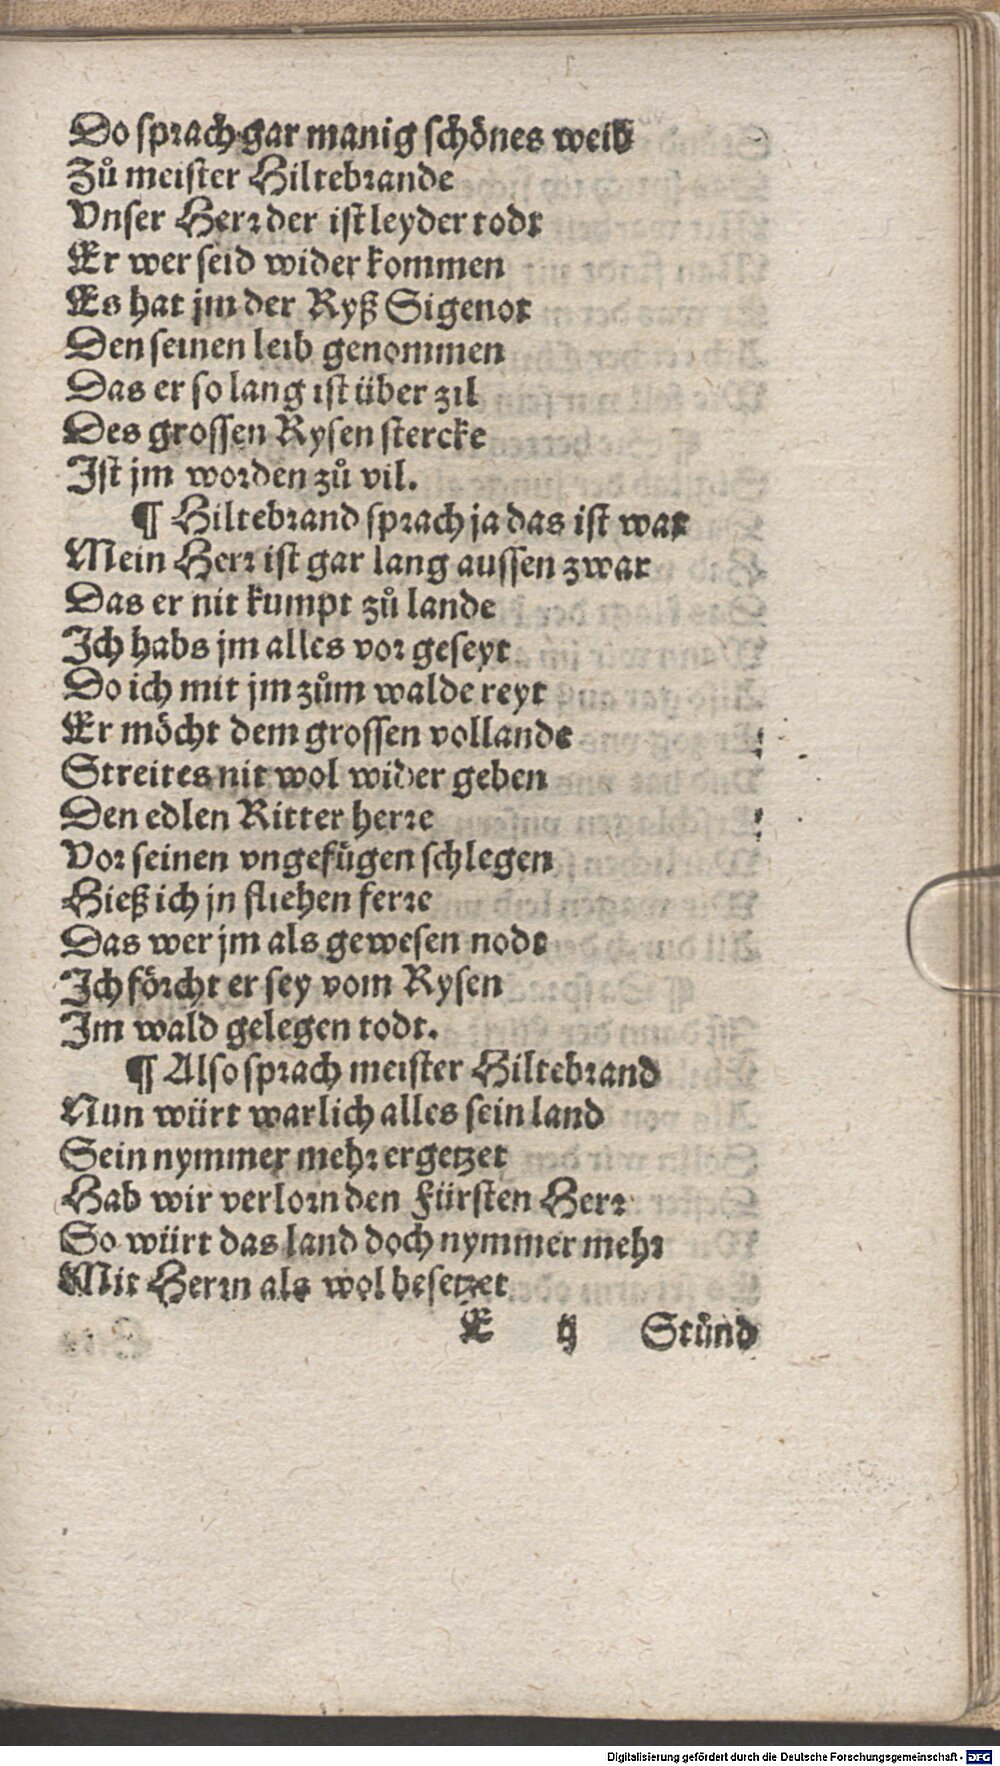 Do sprach gar manig schönes weib
Zů meister Hiltebrande
Vnser Herr der ist leyder todt
Er wer seid wider kommen
Es hat jm der Ryß Sigenot
Den seinen leib genommen
Das er so lang ist über zil
Des grossen Rysen stercke
Ist jm worden zů vil.
¶ Hiltebrand sprach ja das ist war
Mein Herr ist gar lang aussen zwar
Das er nit kumpt zů lande
Ich habs jm alles vor geseyt
Do ich mit jm zům walde reyt
Er möcht dem grossen vollande
Streites nit wol wider geben
Den edlen Ritter herre
Vor seinen vngefügen schlegen
Hieß ich jn fliehen ferre
Das wer jm als gewesen nodt
Ich förcht er sey vom Rysen
Im wald gelegen todt.
¶ Also sprach meister Hiltebrand
Nun würt warlich alles sein land
Sein nymmer mehr ergetzet
Hab wir verlorn den Fürsten Herr
So würt das land doch nymmer mehr
Mit Herrn als wol besetzet
E ij Stůnd
Digitalisierung gefördert durch die Deutsche Forschungsgemeinschaft - DFG